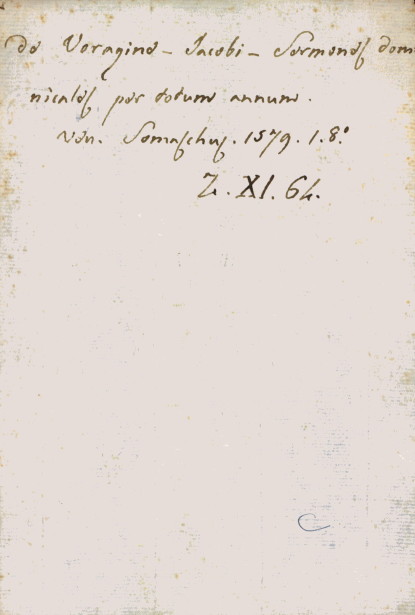 de Voragine – Jacobi – Sermones dom
nicales per totum annum.
Ven. Somaschus. 1579. 1. 8.º
Z. XI. 64.